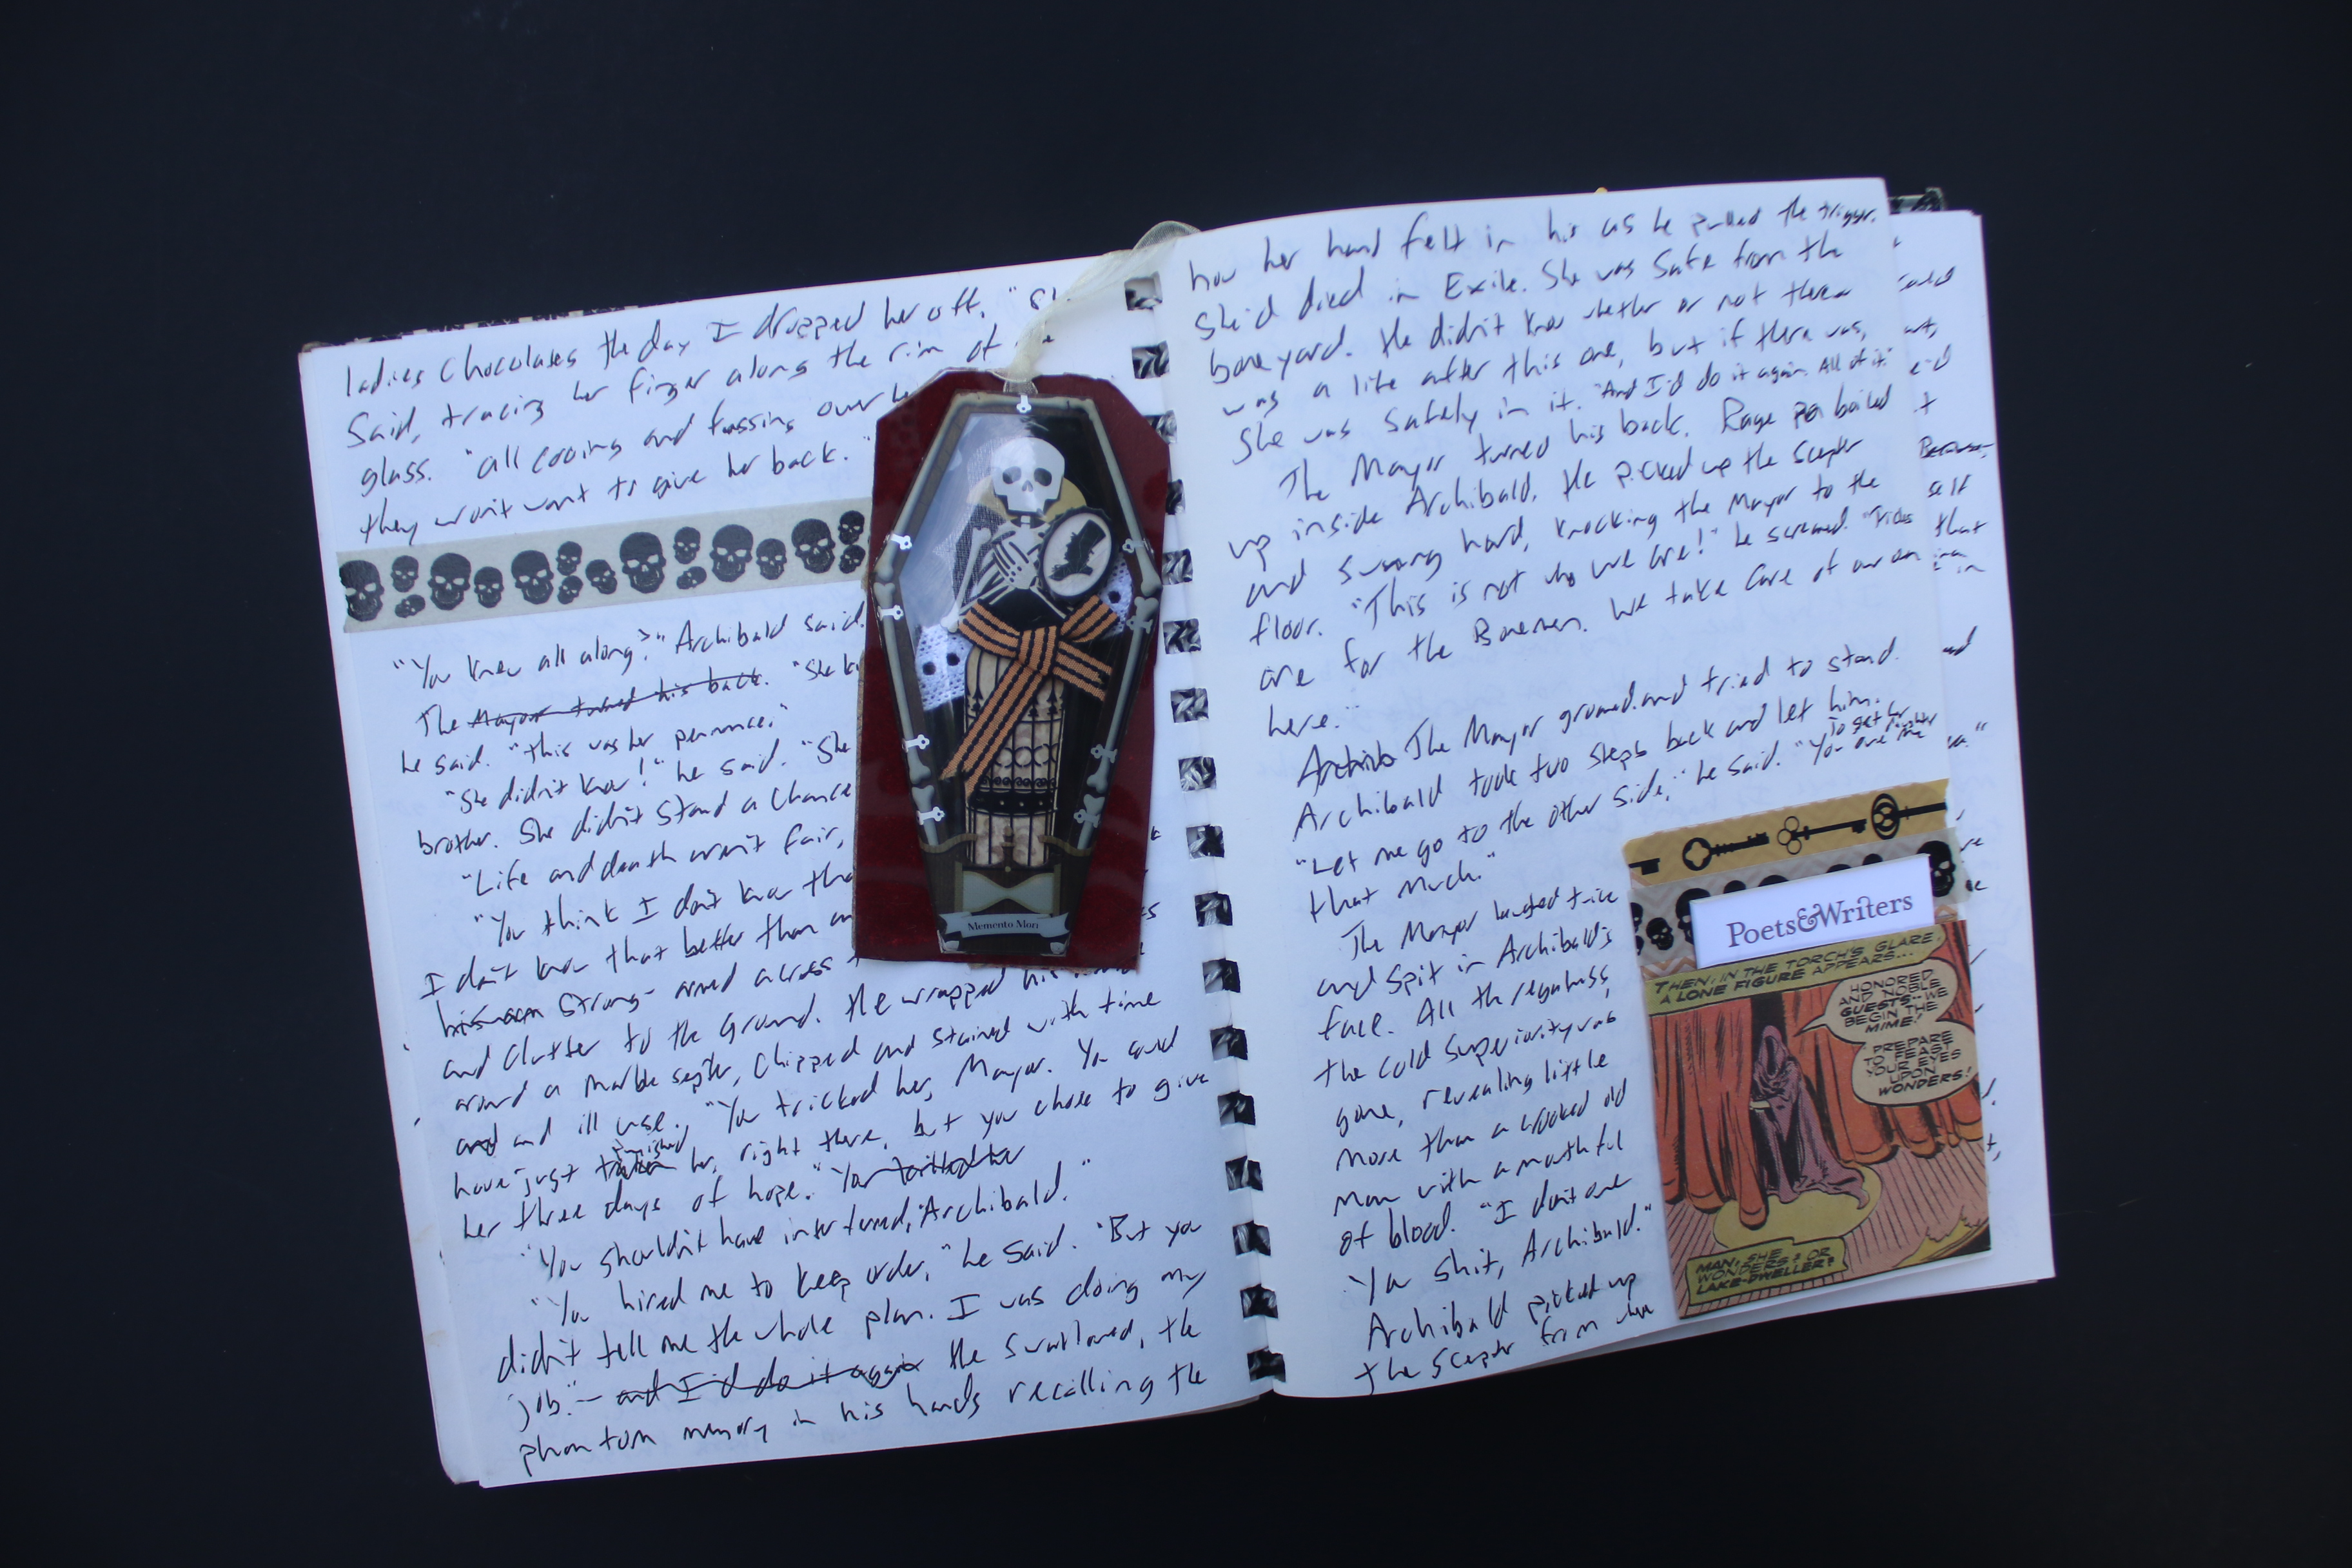 ladies chocolates the day I dropped her off." Sh
Said, tracing her finger along the rim of
glass. "all cooing and fussing over he
they won't want to give her back."
"You knew all along?" Archibald said.
The Mayor turned his back. "She k
he said. "this was her penance."
"She didn't know!" he said. "She
brother. She didn't stand a chance
"Life and death aren't fair,
"You think I don't know tha
I don't know that better than an
his arm Strong-armed across
and clutter to the ground. He wrapped his
around a marble septer, Chipped and stained with time
and and ill use. "You tricked her, Mayor. You could
have just taken punished her, right there, but you chose to give
her three days of hope." You
"You shouldn't have interfered, Archibald."
"You hired me to keep order," he said. "But you
didn't tell me the whole plan. I was doing my
job." – and I'd do it again the swallowed, the
phantom memory in his hands recalling the
Memento Mori
how her hand felt in his as he pulled the trigger.
She'd died in Exile. She was Safe from the
boneyard. He didn't know whether or not there
was a life after this one, but if there was,
She was safely in it. "And I'd do it again. All of it."
The Mayor turned his back. Rage boiled
up inside Archibald. He picked up the Scepter
and swung hard, knocking the Mayor to the
floor. "This is not who we are!" he screamed. "Tricks
are for the Bonemen. We take Care of our own
here."
Archib The Mayor groaned and tried to stand.
Archibald took two steps back and let him.
"Let me go to the other side," he said. "You owe me
To get her
that much."
The Mayor laughed
and Spit in Archibald's
face. All the regalness,
the cold superiority was
gone, revealing little
more than a crooked old
man with a mouthful
of blood. "I don't owe
You shit, Archibald."
Archibald picked up
the Scepter from where
Poets&Writers
THEN, IN THE TORCH'S GLARE,
A LONE FIGURE APPEARS...
HONORED
AND NOBLE
GUESTS-- WE
BEGIN THE
MIME!
PREPARE
TO FEAST
YOUR EYES
UPON
WONDERS!
MAN, SHE
WONDERS? OR
LAKE-DWELLER?
Because,
self
that